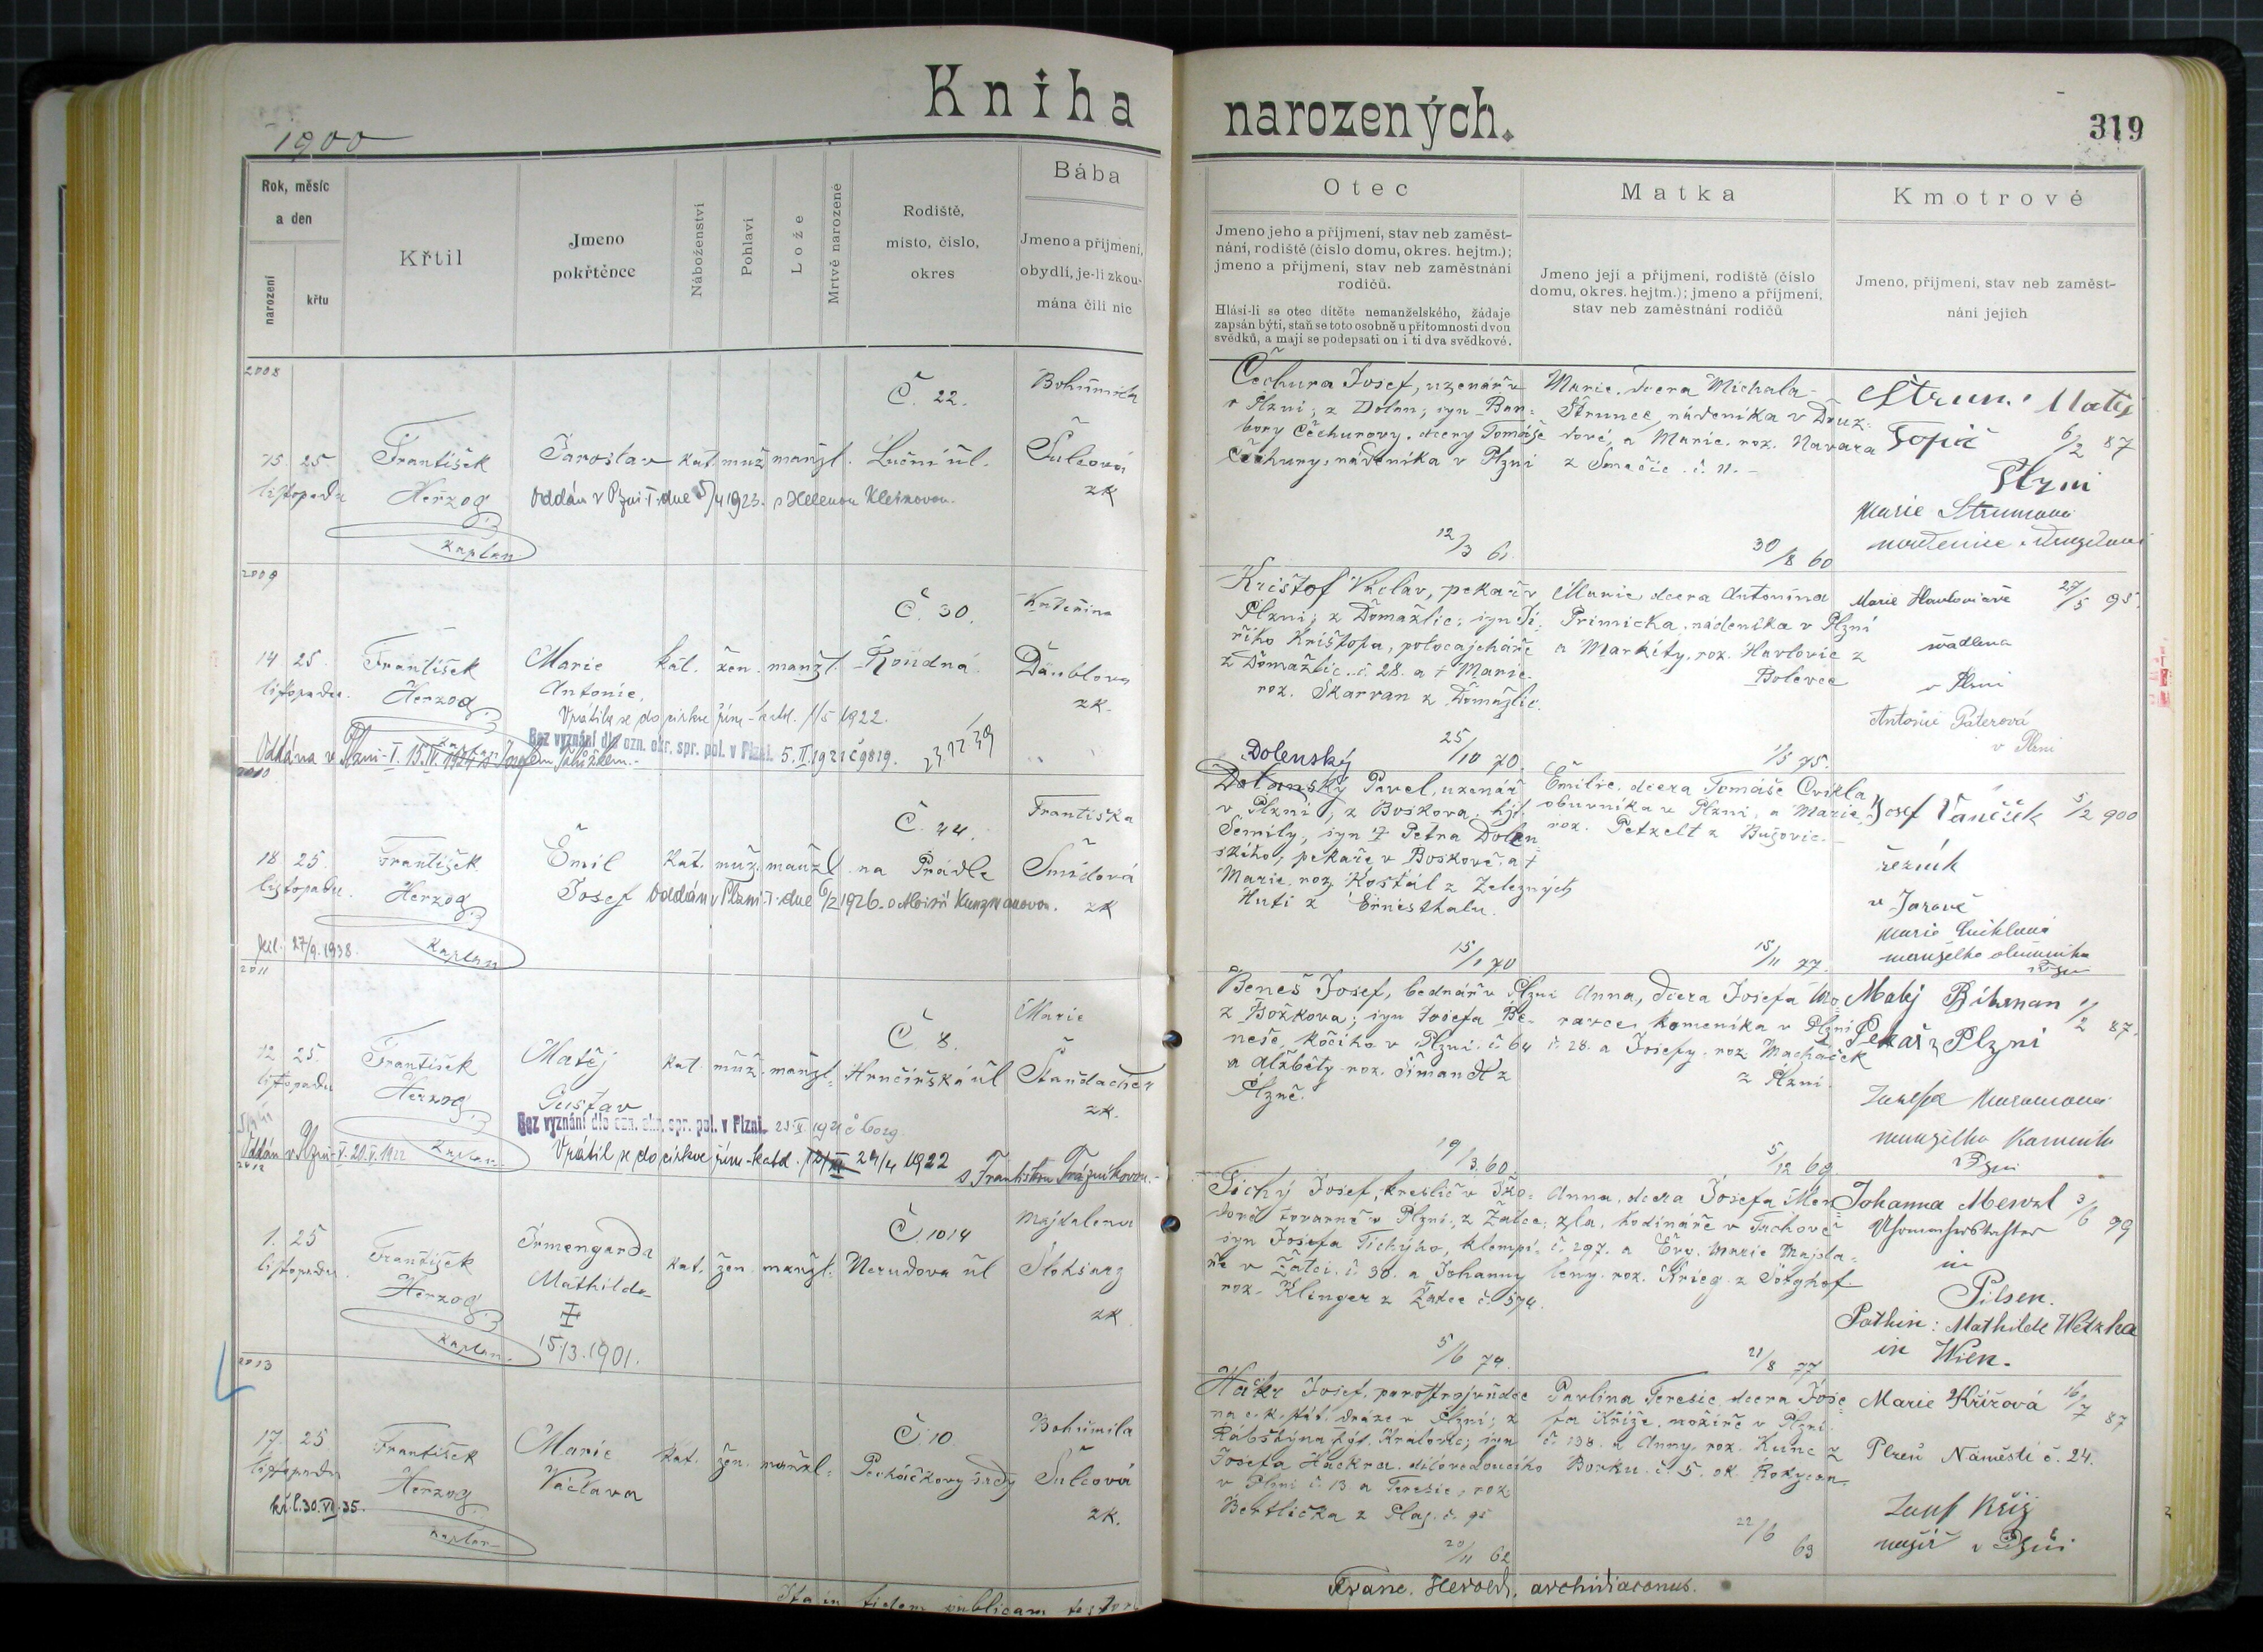 Kniha narozených.
1900
319
Rok, měsíc a den
narození
křtu
Křtil
Jmeno pokřtěnce
Náboženství
Pohlaví
Lože
Mrtvě narozené
Rodiště, místo, číslo, okres
Bába
Jmeno a příjmení, obydlí, je-li zkoumána čili nic
Otec
Jmeno jeho a příjmení, stav neb zaměst-
nání, rodiště (číslo domu, okres. hejtm.);
jmeno a příjmení, stav neb zaměstnání
rodičů.
Hlásí-li se otec dítěte nemanželského, žádaje
zapsán býti, staň se toto osobně u přítomnosti dvou
svědků, a mají se podepsati on i ti dva svědkové.
Matka
Jmeno její a příjmení, rodiště (číslo
domu, okres. hejtm.); jmeno a příjmení,
stav neb zaměstnání rodičů
Kmotrové
Jmeno, příjmení, stav neb zaměst-
nání jejich
2008
15 25
listopadu
František
Herzog
kaplan
Jaroslav kat. muž. manžl.
Č. 22.
Luční ul.
Bohumila
Šulcová
zk
Oddán v Plzni-I. dne 5/4 1923. s Helenou
Čechura Josef, uzenář v
v Plzni; z Dolan; syn Bar-
bory Čechurovy, dcery Tomáše
Čechury, nádeníka v Plzni
12/3 61.
Marie, dcera Michala
Štrunce, nádeníka v Druz-
dové, a Marie, roz. Navara
z Smečic č. 11.
30/8 60
Matěj
Topič 6/2 87
Plzni
Marie
2009
14 25.
listopadu.
František
Herzog
Marie
Antonie.
kat. žen. manžl.
Č. 30.
Koudná
Kateřina
Däublova
zk.
Vrátila se do církve řím-katol. 1/5 1922.
Bez vyznání dle ozn. okr. spr. pol. v Plzni. 5.II.1921 č 9819.
Oddána v Plzni-I. 15.IV.
Krištof Václav, pekař v
Plzni; z Domažlic; syn Ji-
řího Krištofa,
z Domažlic č. 28. a † Marie
roz. Skarvan z Domažlic.
25/10 70.
Marie dcera Antonína
Primicka, nádeníka v Plzni
a Markéty, roz. Havlovic z
Bolevce
1/5 75.
Marie Havlovicová 27/5 95.
švadlena
v Plzni
Antonie Paterová
v Plzni
2010
18 25.
listopadu.
František
Herzog
kaplan
Emil
Josef
kat. muž. manžl
Č. 44.
na Prádle
Františka
Šmídová
zk
Oddán v Plzni-I. dne 6/2 1926. s Aloisií Kunzmanovou.
27/9. 1938.
Dolenský
Dolanský Pavel, uzenář
v Plzni, z Boskova, hjt.
Semily, syn † Petra Dolen-
ského, pekaře v Boskově, a †
Marie, roz. Košťál z Železných
Hutí z Ernesthalu.
15/1 70
Emilie, dcera Tomáše Cvikla
obuvníka v Plzni, a Marie,
roz. Petzelt z Bužovic.
15/11 77.
Josef Vaněček 5/2 900
řezník
v Jarově
Marie Cviklová
manželka obuvníka
2011
12. 25.
listopadu
František
Herzog
kaplan
Matěj
Gustav
kat. muž. manžl.
Č. 8.
Hrnčířská ul
Marie
Štaudacher
zk.
Bez vyznání dle ozn. okr. spr. pol. v Plzni.
Vrátil se do církve řím-katol. 24/4 1922
Oddán v Plzni-I. 20.V.1922
s Františkou Trázníkovou.
Beneš Josef, bednář v Plzni
z Božkova; syn Josefa Be-
neše, kočího v Plzni č 64
a Alžběty roz. Šimandl z
Plzně.
19/3. 60.
Anna, dcera Josefa Mo-
ravce, kameníka v Plzni
č. 28. a Josefy roz. Macháček
z Plzni
5/12 69.
Matěj 1/2 87.
Pekař v Plzni
manželka
2012
1. 25
listopadu
František
Herzog
kaplan
Irmengarda
Mathilda
15/3.1901.
kat. žen. manžl.
Č 1014
Nerudova ul
Majdalena
zk
Tichý Josef, kreslič v Ško-
dově továrně v Plzni, z Žatce;
syn Josefa Tichýho, klempí-
ře v Žatci č. 30. a Johanny
roz. Klinger z Žatce č. 574.
5/6 74.
Anna, dcera Josefa Men-
zla, hodináře v Tachově
č. 297. a Evy Marie Majda-
leny roz. Krieg z
21/8 77
Johanna Menzl 3/6 99
in
Pilsen.
Pathin: Mathilde Wetzka
in Wien.
2013
17. 25
listopadu
František
Herzog
kaplan
Marie
Václava
kat. žen. manžl.
Č. 10.
Pecháčkovy sady
Bohumila
Šulcová
zk.
30.VI.35.
Hackr Josef, parostrojvůdce
na c. k. stát. dráze v Plzni; z
Rabštýna hjt. Kralovic; syn
Josefa Hackra, dílovedoucího
v Plzni č. 13 a Terezie, roz.
Bertlička z Plas. č. 95
20/11 62
Pavlina Terezie, dcera Jose-
fa Kříže, nožíře v Plzni
č. 138. a Anny, roz. Kunc z
Borku č. 5. ok. Rokycan.
22/6 63
Marie Křížová 16/7 87
Plzeň Náměstí č. 24.
Josef Kříž
nožíř v Plzni
Ita in fidem publicam
Franc. Herold, archidiaconus.